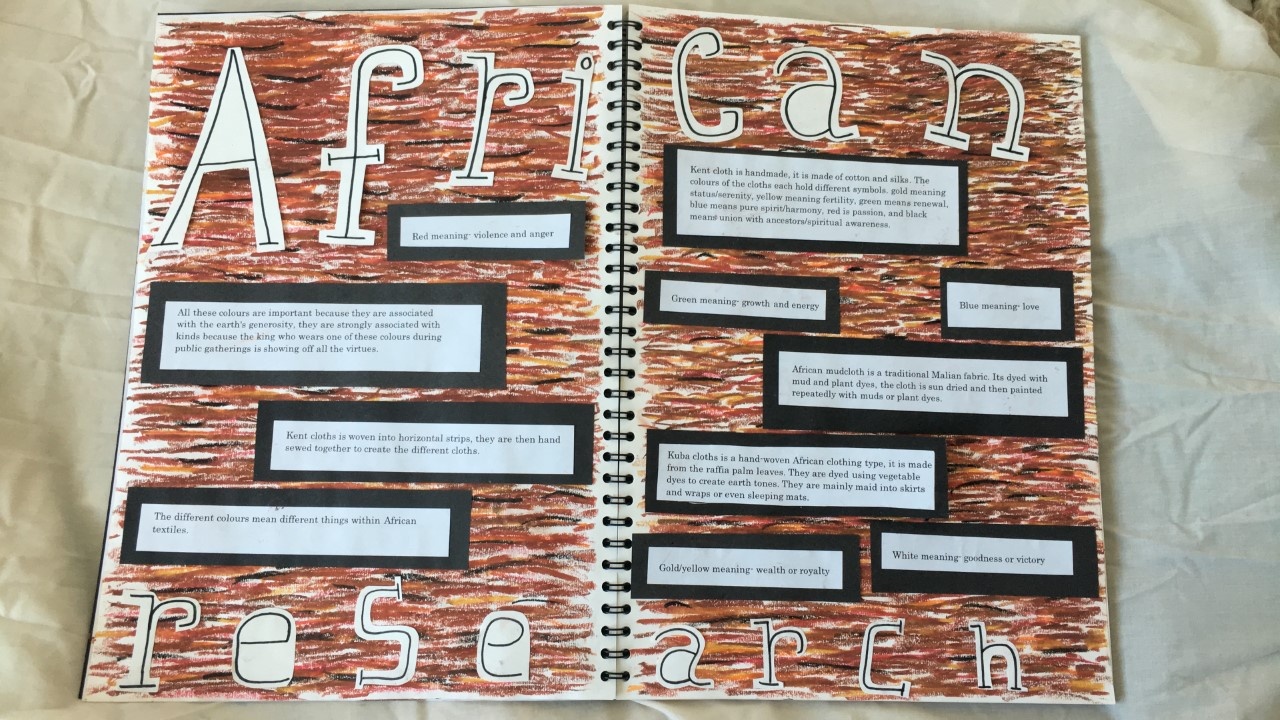 African
Red meaning- violence and anger
All these colours are important because they are associated
with the earth's generosity, they are strongly associated with
kinds because the king who wears one of these colours during
public gatherings is showing off all the virtues.
Kent cloths is woven into horizontal strips, they are then hand
sewed together to create the different cloths.
The different colours mean different things within African
textiles.
Kent cloth is handmade, it is made of cotton and silks. The
colours of the cloths each hold different symbols. gold meaning
status/serenity, yellow meaning fertility, green means renewal,
blue means pure spirit/harmony, red is passion, and black
means union with ancestors/spiritual awareness.
Green meaning- growth and energy
Blue meaning- love
African mudcloth is a traditional Malian fabric. Its dyed with
mud and plant dyes, the cloth is sun dried and then painted
repeatedly with muds or plant dyes.
Kuba cloths is a hand-woven African clothing type, it is made
from the raffia palm leaves. They are dyed using vegetable
dyes to create earth tones. They are mainly maid into skirts
and wraps or even sleeping mats.
Gold/yellow meaning- wealth or royalty
White meaning- goodness or victory
research